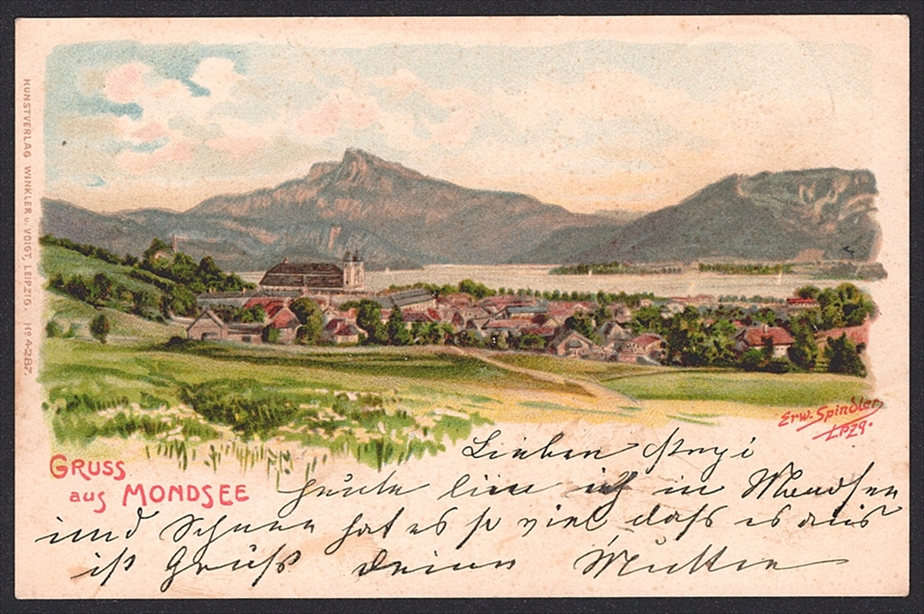 KUNSTVERLAG WINKLER u. VOIGT, LEIPZIG. No 4287.
Erw. Spindler
Lpzg.
GRUSS
aus MONDSEE
Lieben
heute bin ich in Mondsee
und Schnee hat es so viel daß es aus
ist Gruß deine Mutter